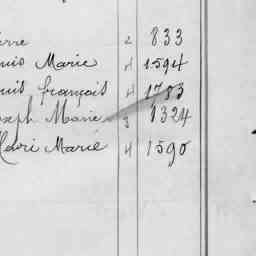 erre 2 833
uis Marie 4 1594
uis françois 4 1783
oseph Marie 3 1324
Henri Marie 4 1590